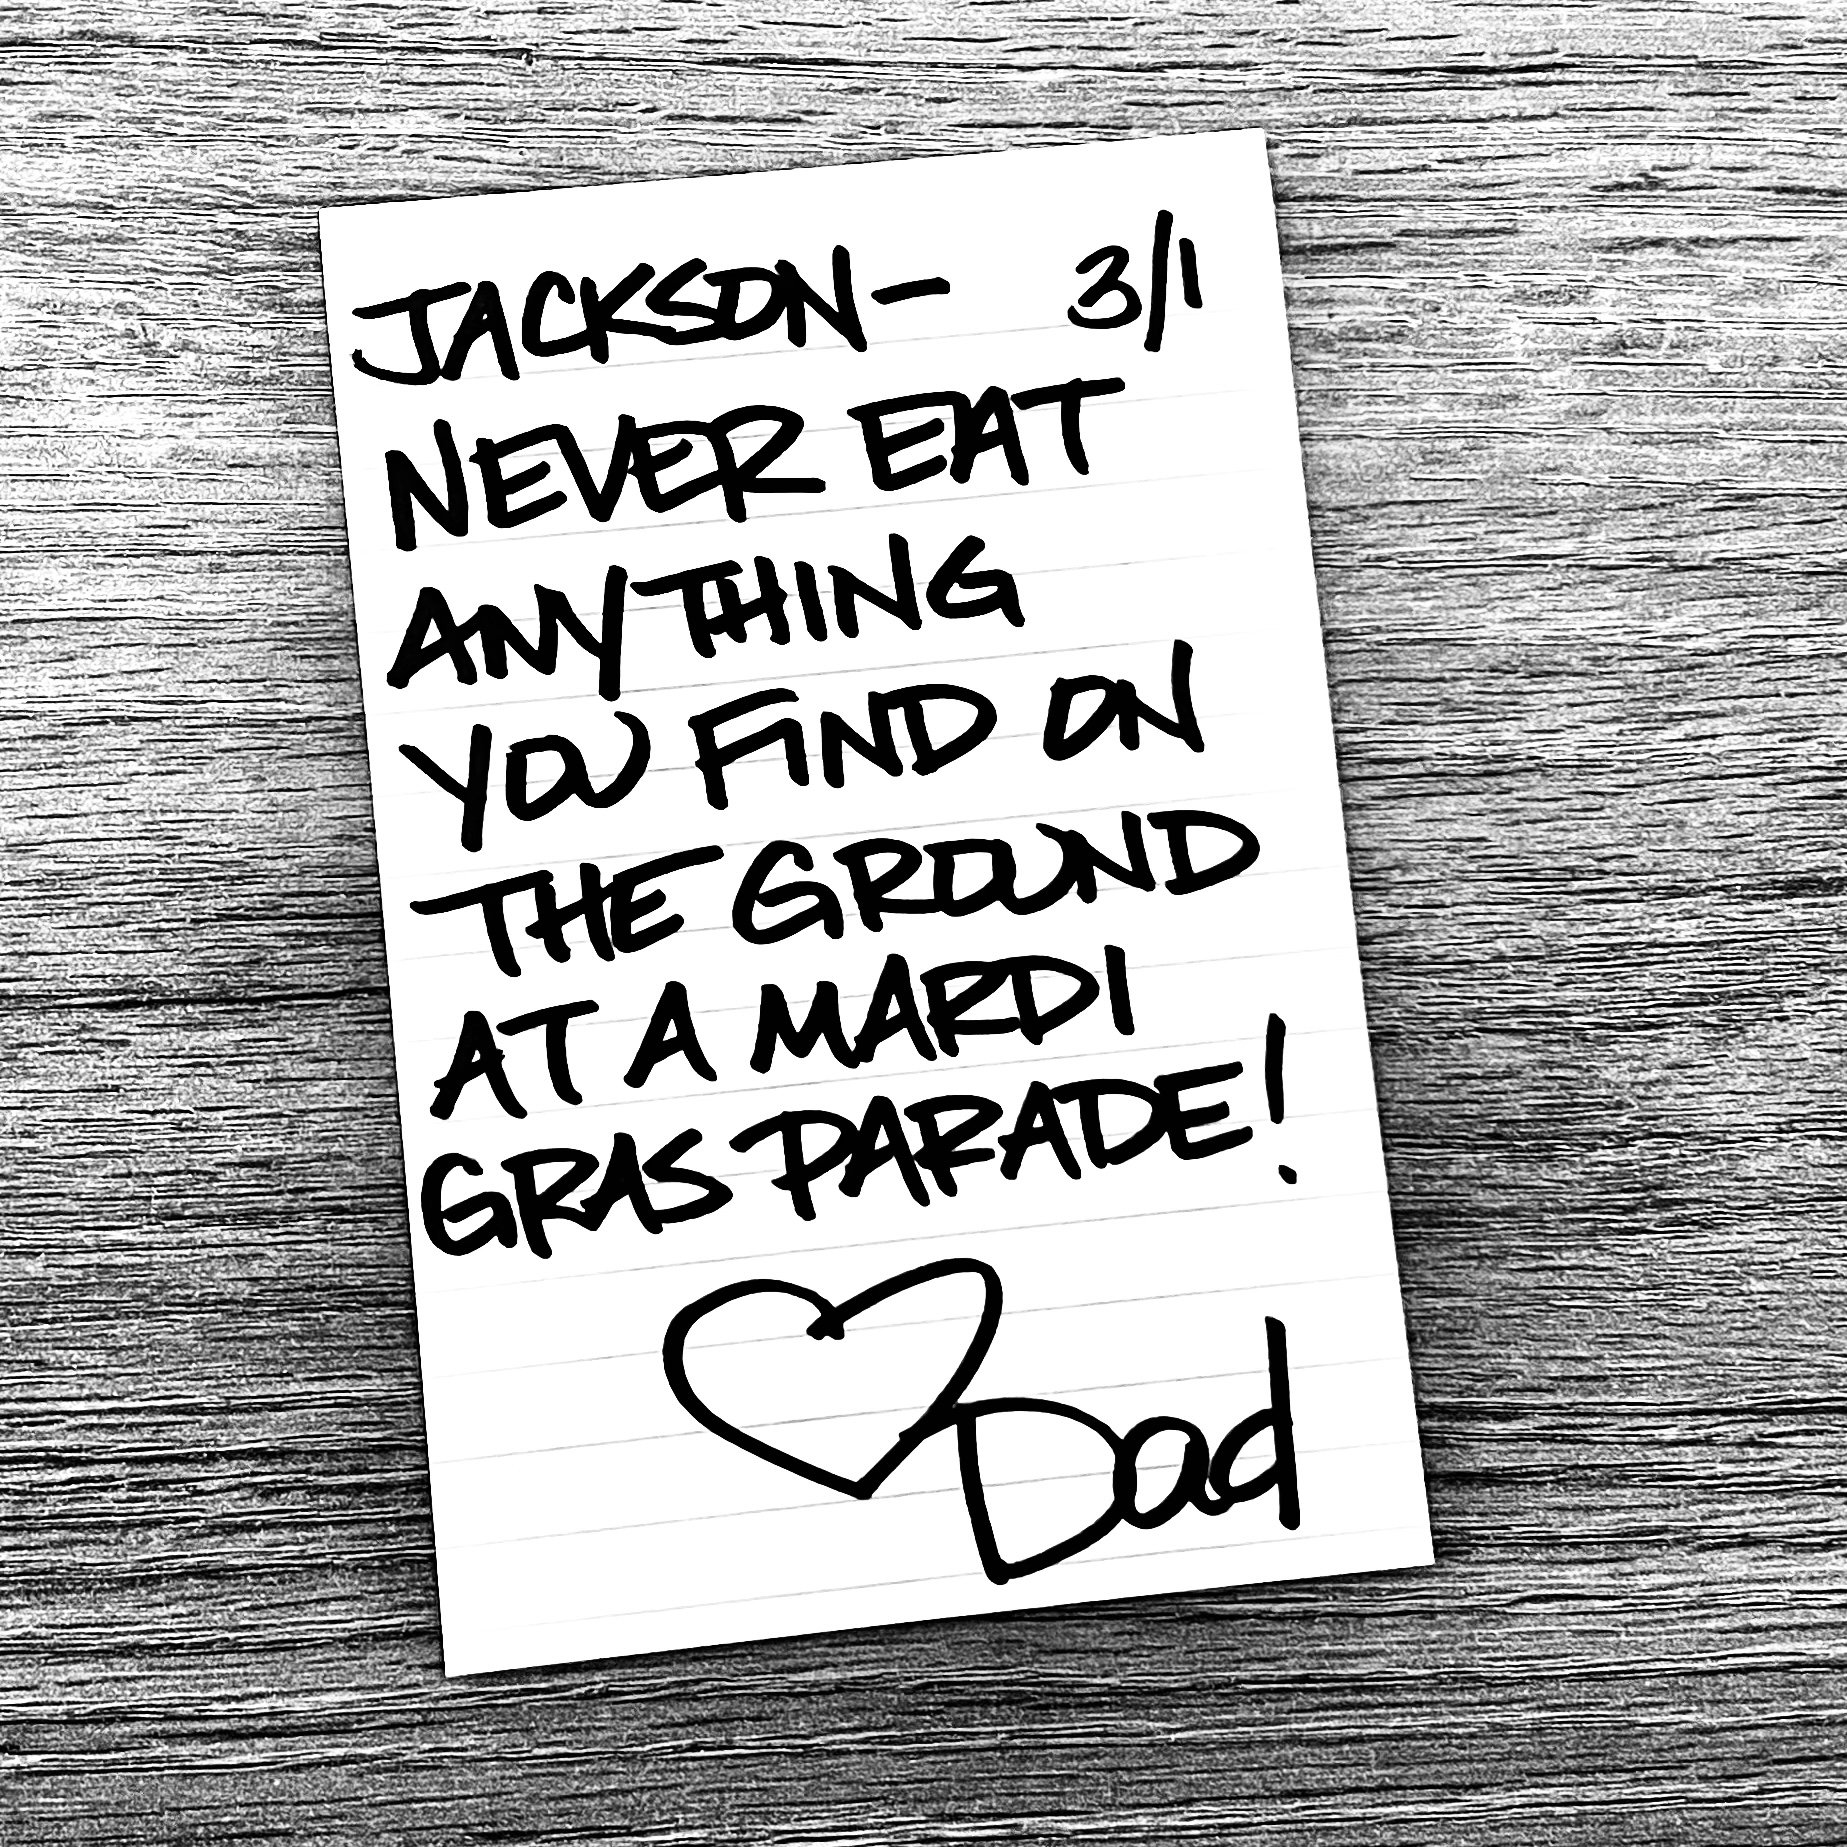 JACKSON- 3/1
NEVER EAT
ANYTHING
YOU FIND ON
THE GROUND
AT A MARDI
GRAS PARADE!
Dad